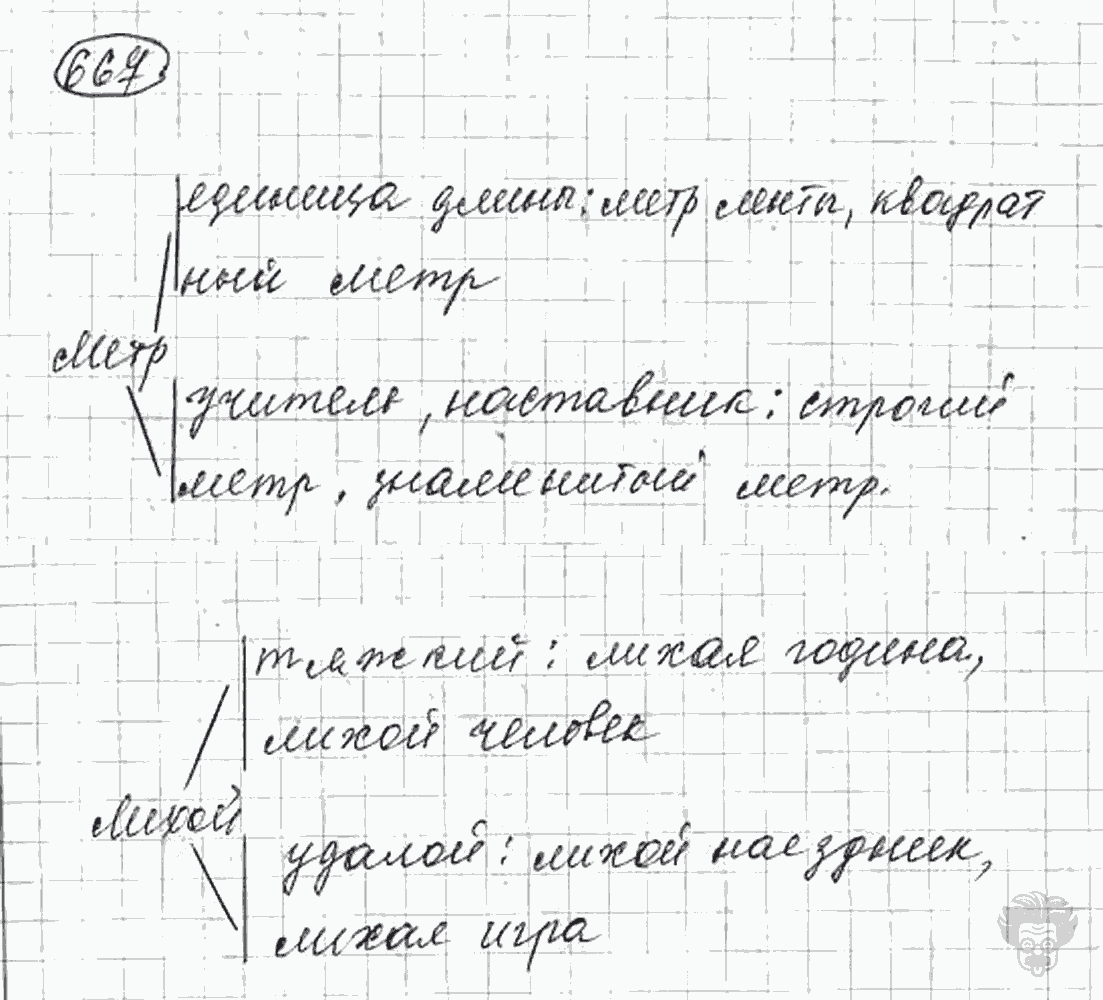 667
единица длины: метр ленты, квадрат
ный метр
Метр
учитель, наставник: строгий
метр, знаменитый метр.
тяжкий: лихая година,
лихой человек
Лихой
удалой: лихой наездник,
лихая игра